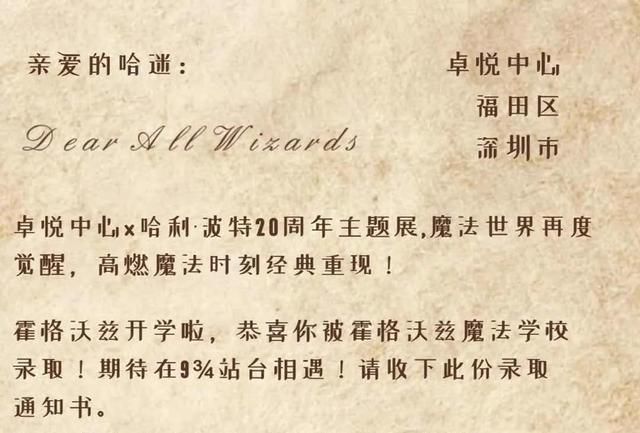 亲爱的哈迷：
卓悦中心
福田区
深圳市
Dear All Wizards
卓悦中心x哈利·波特20周年主题展,魔法世界再度
觉醒，高燃魔法时刻经典重现！
霍格沃兹开学啦，恭喜你被霍格沃兹魔法学校
录取！期待在9¾站台相遇！请收下此份录取
通知书。